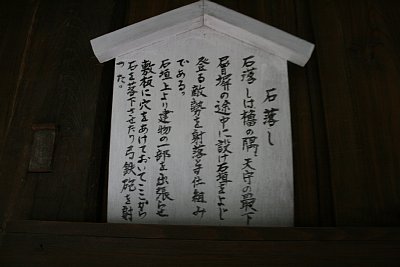 石落し
石落しは櫓の隅、天守の最下
層塀の途中に設け石垣をよじ
登る敵勢を射落とす仕組み
である。
石垣上より建物の一部を出張らせ
敷板に穴をあけておいてここから
石を落下させたり弓鉄砲を射
った。